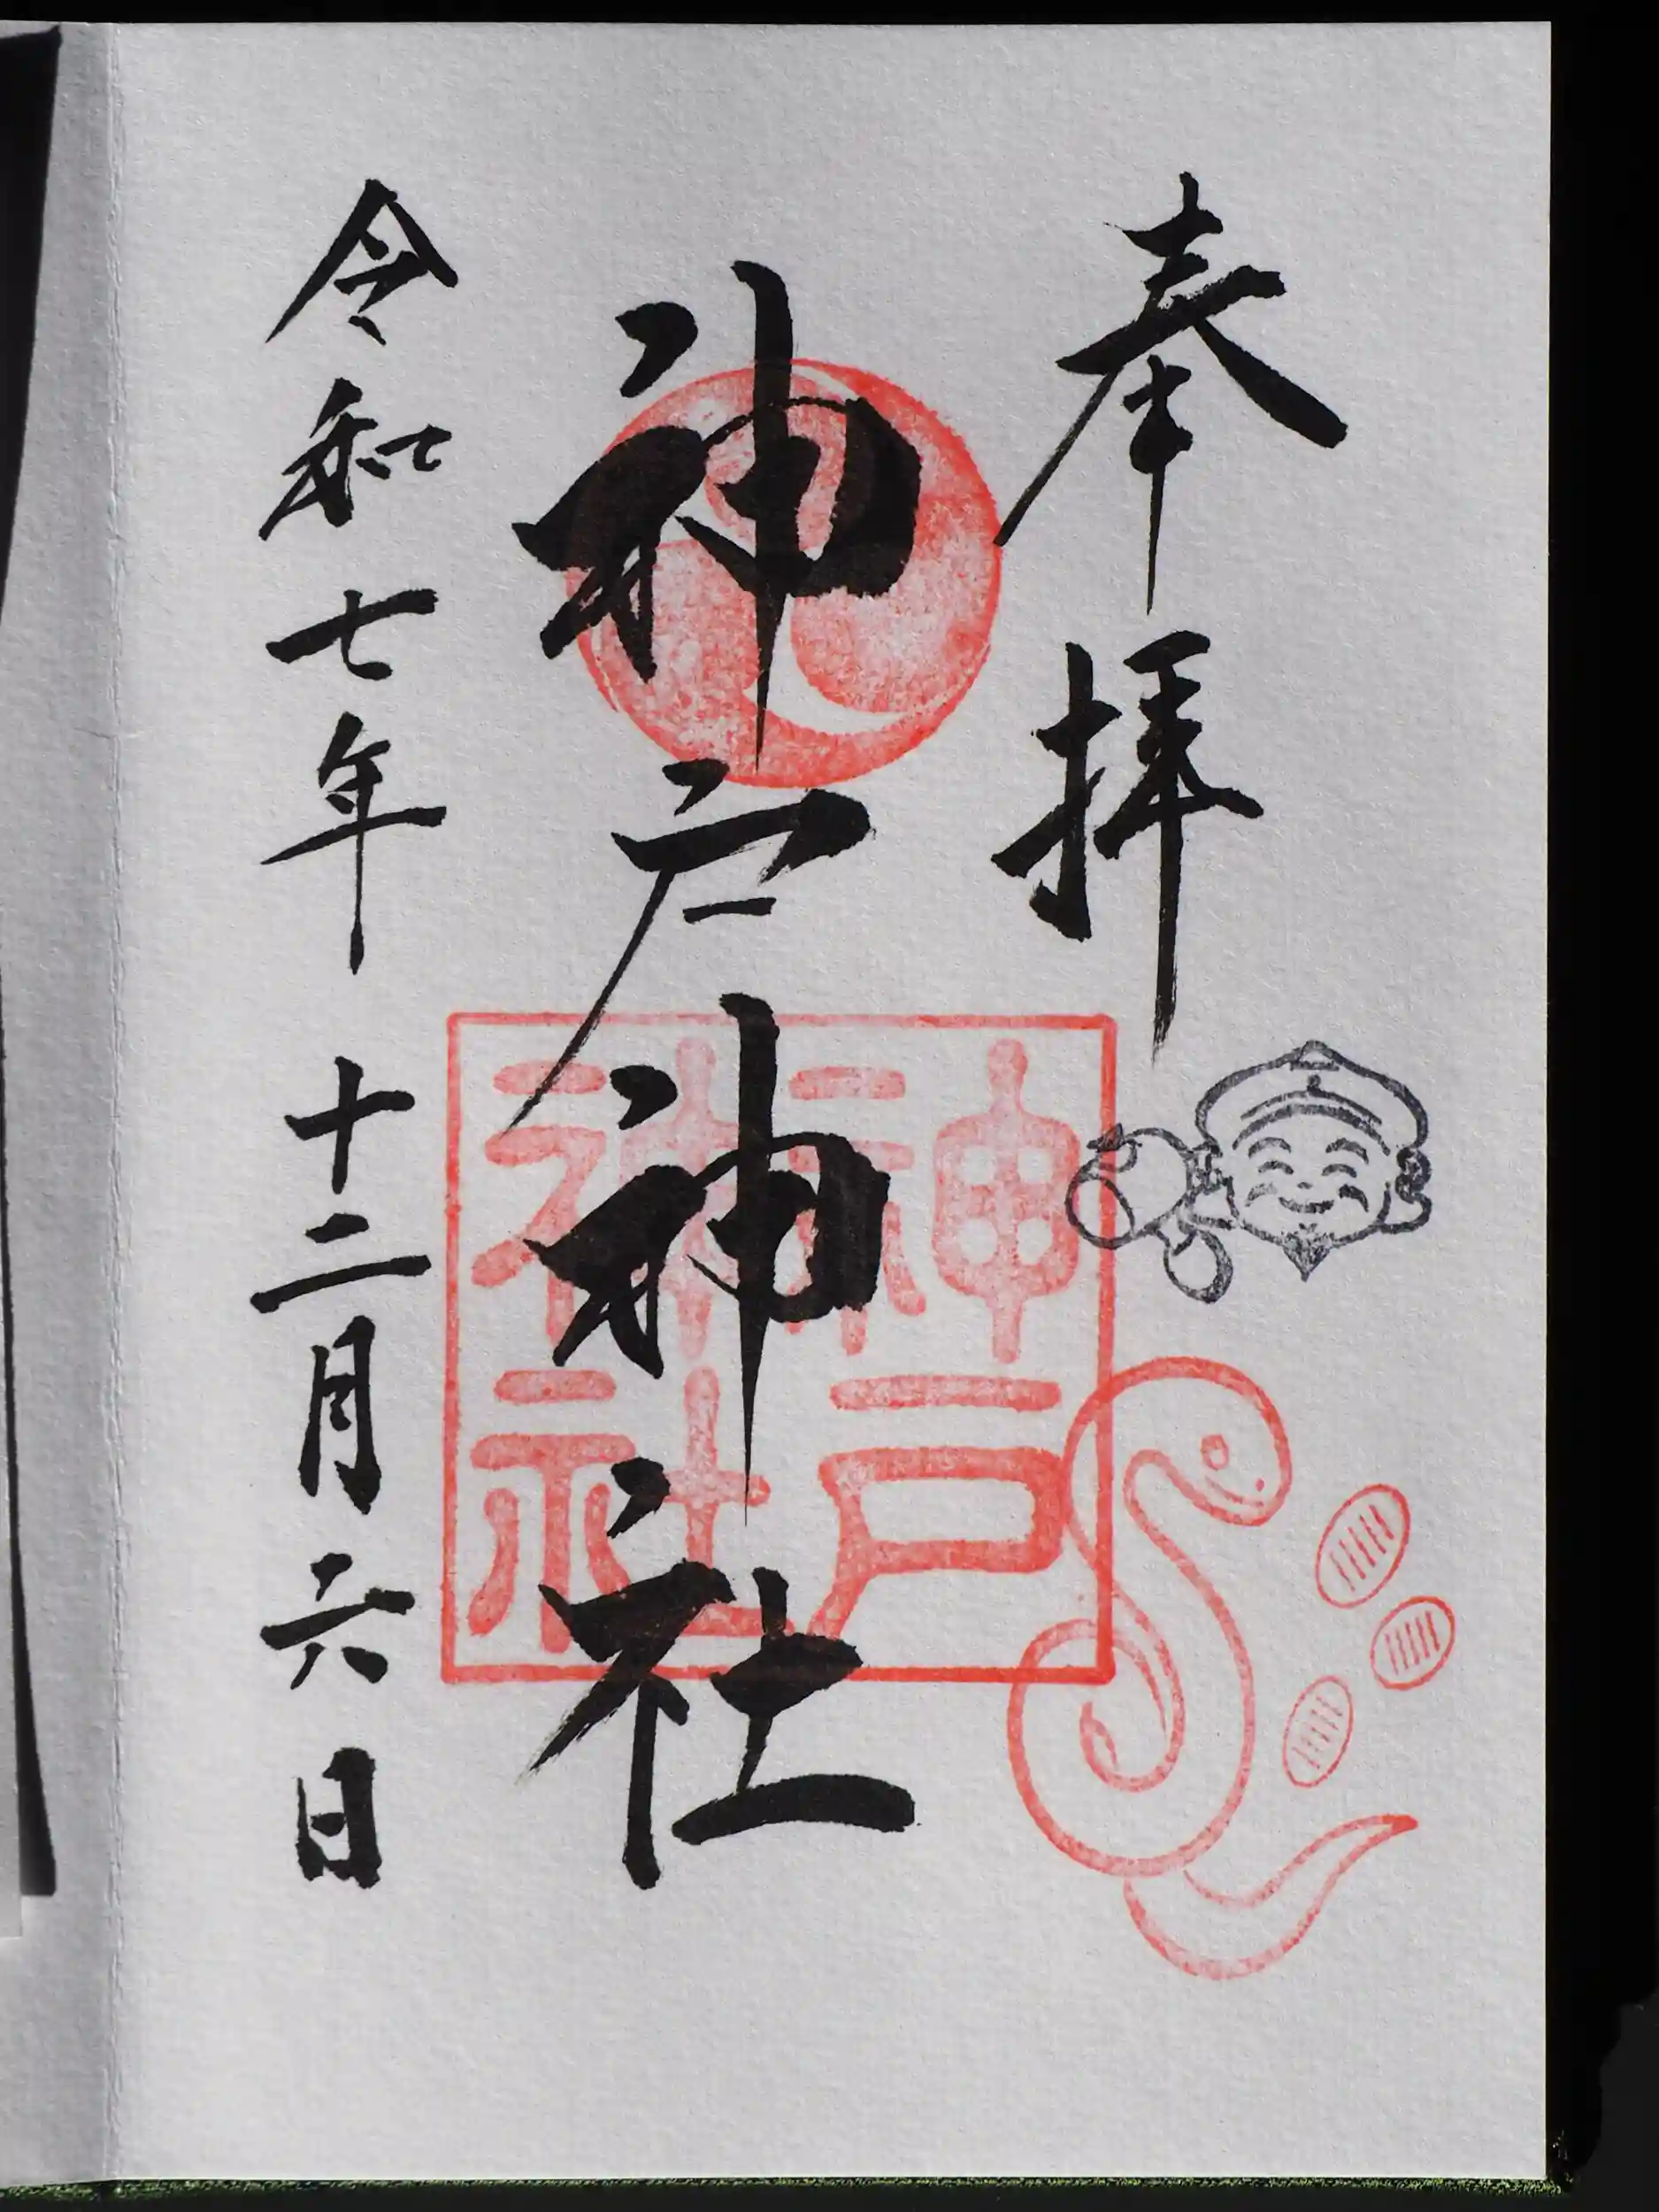 奉拝
神戸神社
神戸神社
令和七年 十二月六日